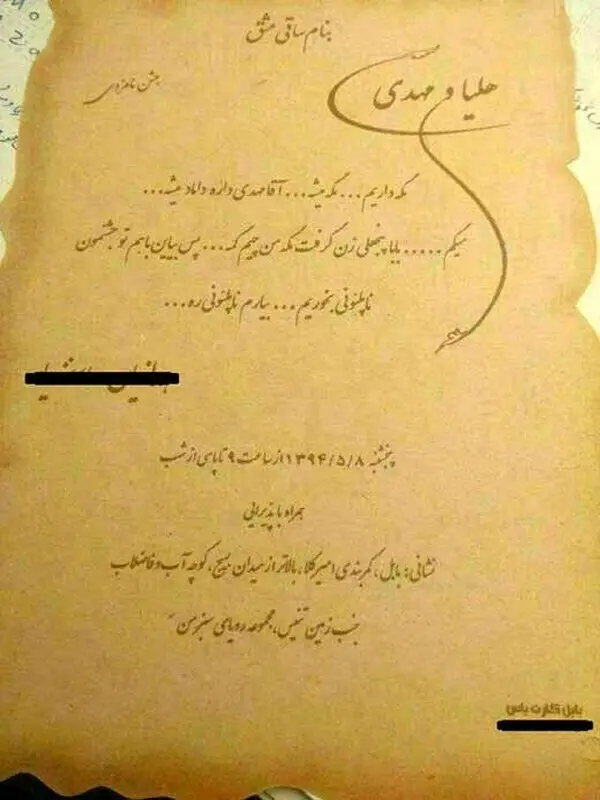 بنام ساقی عشق
هلیا و مهدی
جشن نامزدی
مگه داریم... مگه میشه... آقا مهدی داره داماد میشه...
میگم ..... بابا پنجعلی زن گرفت مگه من چیم کمه... پس بیاین باهم تو جشمون
ناپلئونی بخوریم... بیارم ناپلئونی ره...
پنجشنبه ۱۳۹۴/۵/۸ از ساعت ۹ تا پاسی از شب
همراه با پذیرایی
نشانی: بابل، کمربندی امیرکلا، بالاتر از میدان بسیج، کوچه آب و فاضلاب
جنب زمین تنیس، مجموعه رویای سبز من
بابل کارت یاس